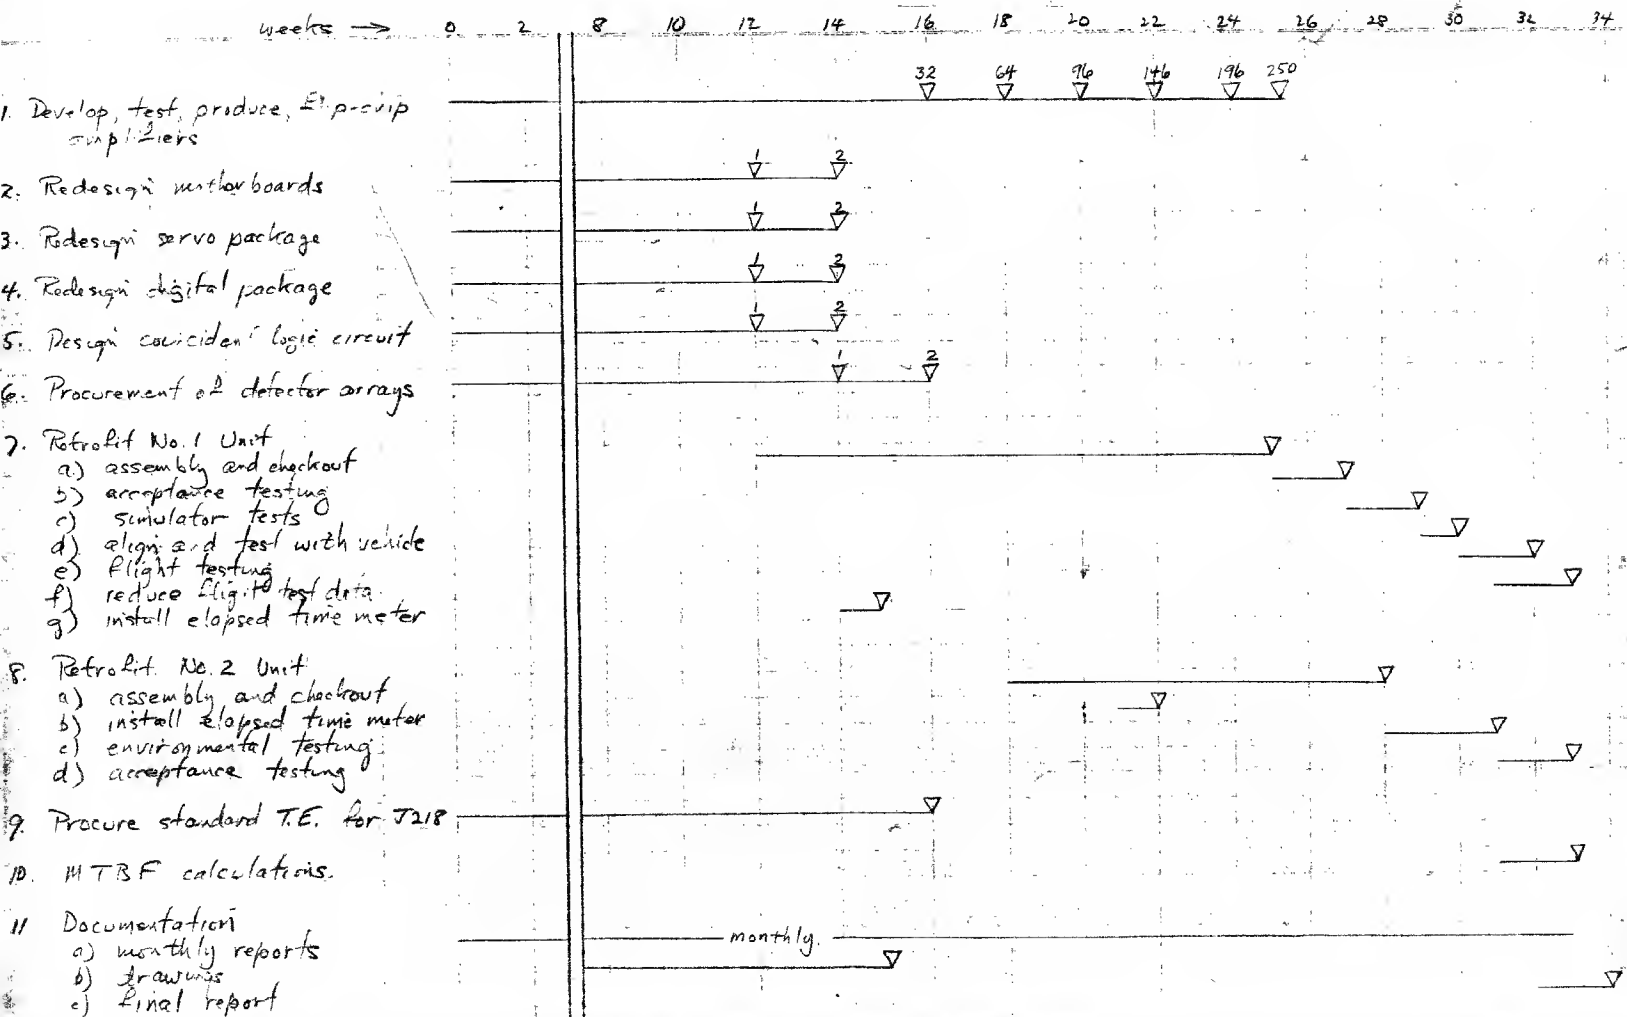 weeks → 0 2 8 10 12 14 16 18 20 22 24 26 28 30 32 34
32 64 96 146 196 250
1. Develop, test, produce,
amplifiers
1 2
2. Redesign motherboards
1 2
3. Redesign servo package
1 2
4. Redesign digital package
1 2
5. Design coincident logic circuit
1 2
6. Procurement of detector arrays
7. Retrofit No. 1 Unit
a) assembly and checkout
b) acceptance testing
c) simulator tests
d) align and test with vehicle
e) flight testing
f) reduce flight test data
g) install elapsed time meter
8. Retrofit No. 2 Unit
a) assembly and checkout
b) install elapsed time meter
c) environmental testing
d) acceptance testing
9. Procure standard T.E. for J218
10. MTBF calculations.
11 Documentation
a) monthly reports
monthly.
b) drawings
c) final report